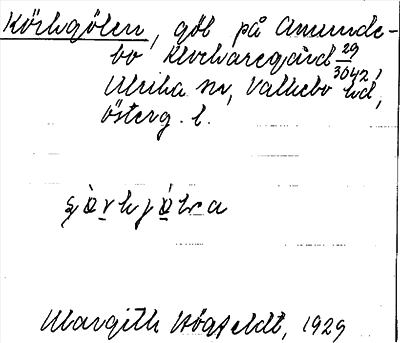 Körhgölen, göl på Amunde-
bo Klockaregård 29/3042,
Ulrika sn, Valkebo hd,
Österg. l.

Margith Högfeldt, 1929